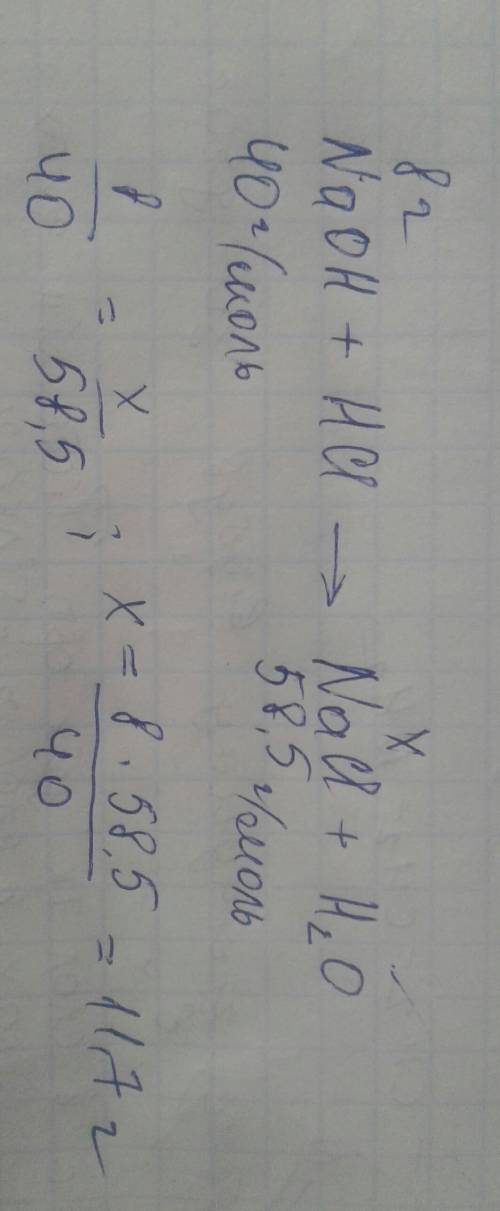 8 г x
NaOH + HCl → NaCl + H₂O
40 г/моль 58,5 г/моль
8/40 = x/58,5 ; x = 8 · 58,5/40 = 117 г